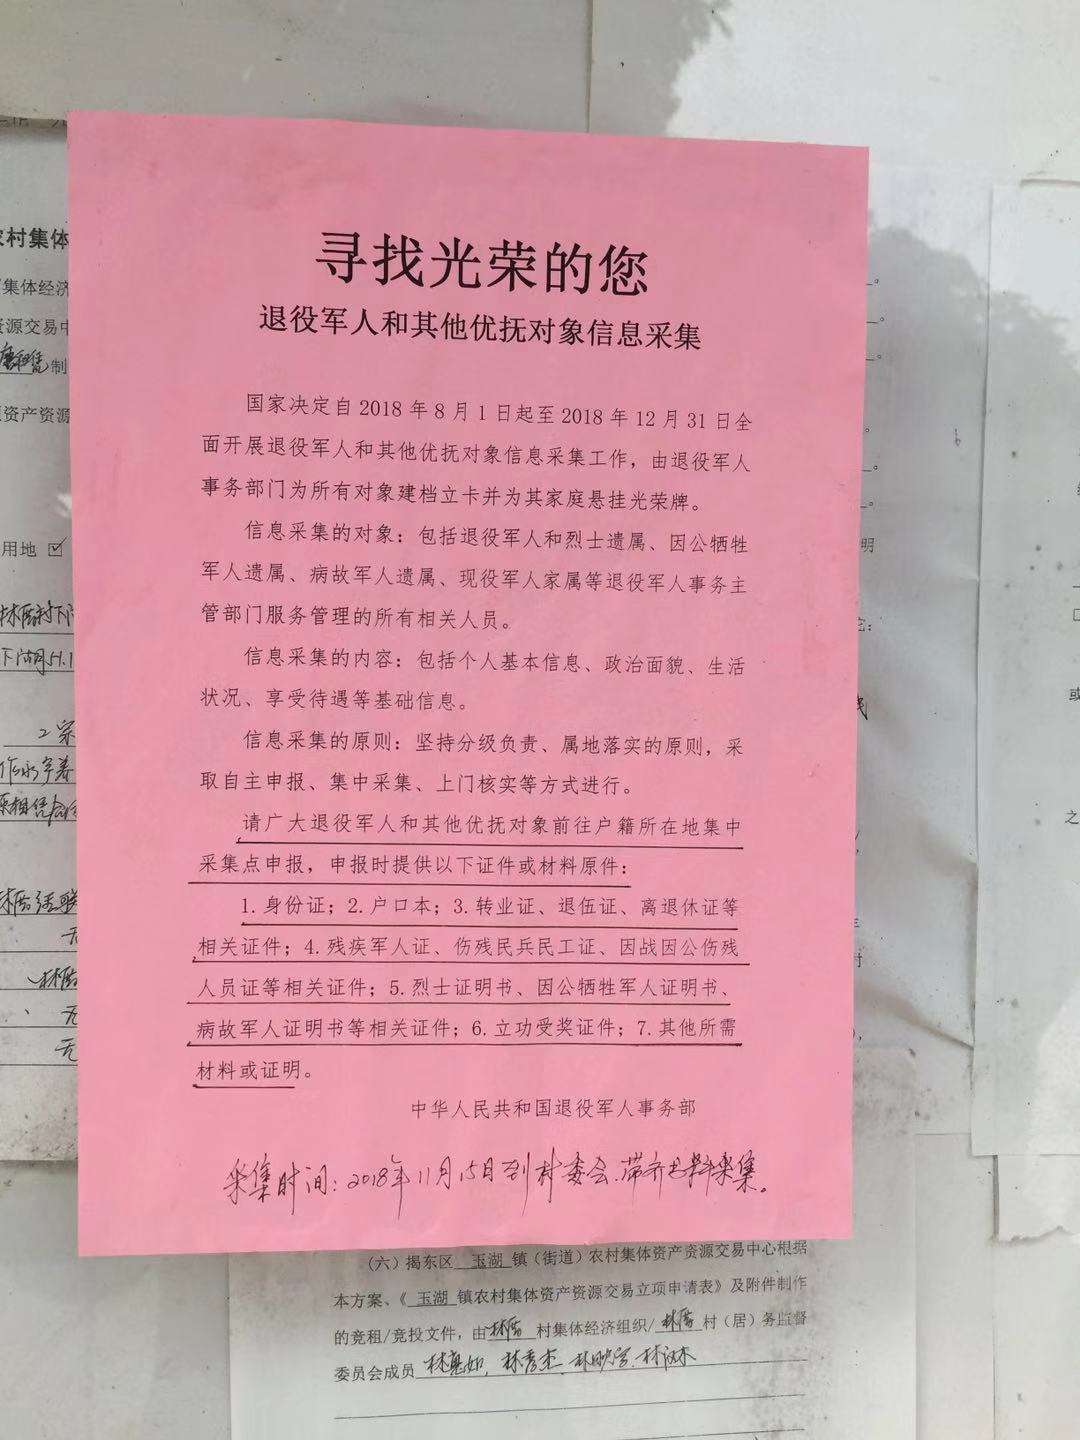 寻找光荣的您
退役军人和其他优抚对象信息采集
国家决定自2018年8月1日起至2018年12月31日全
面开展退役军人和其他优抚对象信息采集工作，由退役军人
事务部门为所有对象建档立卡并为其家庭悬挂光荣牌。
信息采集的对象：包括退役军人和烈士遗属、因公牺牲
军人遗属、病故军人遗属、现役军人家属等退役军人事务主
管部门服务管理的所有相关人员。
信息采集的内容：包括个人基本信息、政治面貌、生活
状况、享受待遇等基础信息。
信息采集的原则：坚持分级负责、属地落实的原则，采
取自主申报、集中采集、上门核实等方式进行。
请广大退役军人和其他优抚对象前往户籍所在地集中
采集点申报，申报时提供以下证件或材料原件：
1.身份证；2.户口本；3.转业证、退伍证、离退休证等
相关证件；4.残疾军人证、伤残民兵民工证、因战因公伤残
人员证等相关证件；5.烈士证明书、因公牺牲军人证明书、
病故军人证明书等相关证件；6.立功受奖证件；7.其他所需
材料或证明。
中华人民共和国退役军人事务部
采集时间：2018年11月15日到村委会.带齐资料采集。
农村集体
集体经济
资源交易中
制
资产资源
用地☑
2宗
无
无
无
明
或
之
（六）揭东区 玉湖 镇（街道）农村集体资产资源交易中心根据
本方案、《 玉湖 镇农村集体资产资源交易立项申请表》及附件制作
的竞租/竞投文件，由林厝 村集体经济组织/ 林厝 村（居）务监督
委员会成员